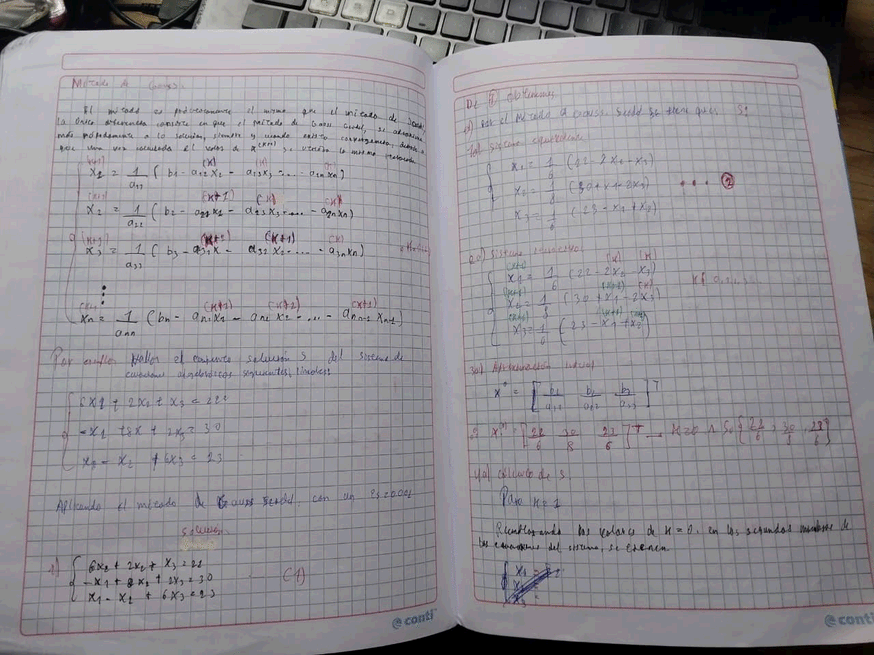 Método de Gauss.
El método es prácticamente el mismo que el método de Jacobi,
la única diferencia consiste en que el método de Gauss Seidel, se aproxima
más rápidamente a la solución, siempre y cuando exista convergencia, debido a
que una vez calculado el valor de x^(k+1)
x1^(k+1) = 1/a11 ( b1 - a12x2^(k) - a13x3^(k) - ... - a1nxn^(k) )
x2^(k+1) = 1/a22 ( b2 - a21x1^(k+1) - a23x3^(k) - ... - a2nxn^(k) )
x3^(k+1) = 1/a33 ( b3 - a31x^(k+1) - a32x2^(k+1) - ... - a3nxn^(k) )
⋮
xn = 1/ann ( bn - an1x1^(k+1) - an2x2^(k+1) - ... - an n-1 xn-1^(k+1) )
Por ejemplo Hallar el conjunto solución S del sistema de
ecuaciones algebraicas siguientes lineales
6x1 + 2x2 + x3 = 22
-x1 + 8x + 2x3 = 30
x1 - x2 + 6x3 = 23
Aplicando el método de Gauss Seidel con un
Solución
1) { 6x1 + 2x2 + x3 = 22
-x1 + 8x2 + 2x3 = 30 (1)
x1 - x2 + 6x3 = 23
conti
De (1) obtenemos
a) Por el método de Gauss Seidel se tiene que,
1a) Sistema equivalente
x1 = 1/6 (22 - 2x2 - x3)
x2 = 1/8 (30 + x1 - 2x3) ... (2)
x3 = 1/6 (23 - x1 + x2)
2a) Sistema
x1^(k+1) = 1/6 (22 - 2x2^(k) - x3^(k))
x2^(k+1) = 1/8 (30 + x1^(k+1) - 2x3^(k))
x3^(k+1) = 1/6 (23 - x1^(k+1) + x2^(k+1))
3a) Aproximación inicial
x° = [ b1/a11 b2/a22 b3/a33 ]^T
[ 22/6 30/8 23/6 ]^T → k=0 ∧ So { 22/6 , 30/8 , 23/6 }
4a) Cálculo de S
Para k=1
Reemplazando los valores de k=0, en los segundos miembros de
las ecuaciones del sistema, se tienen
x1 =
x
x3 =
conti